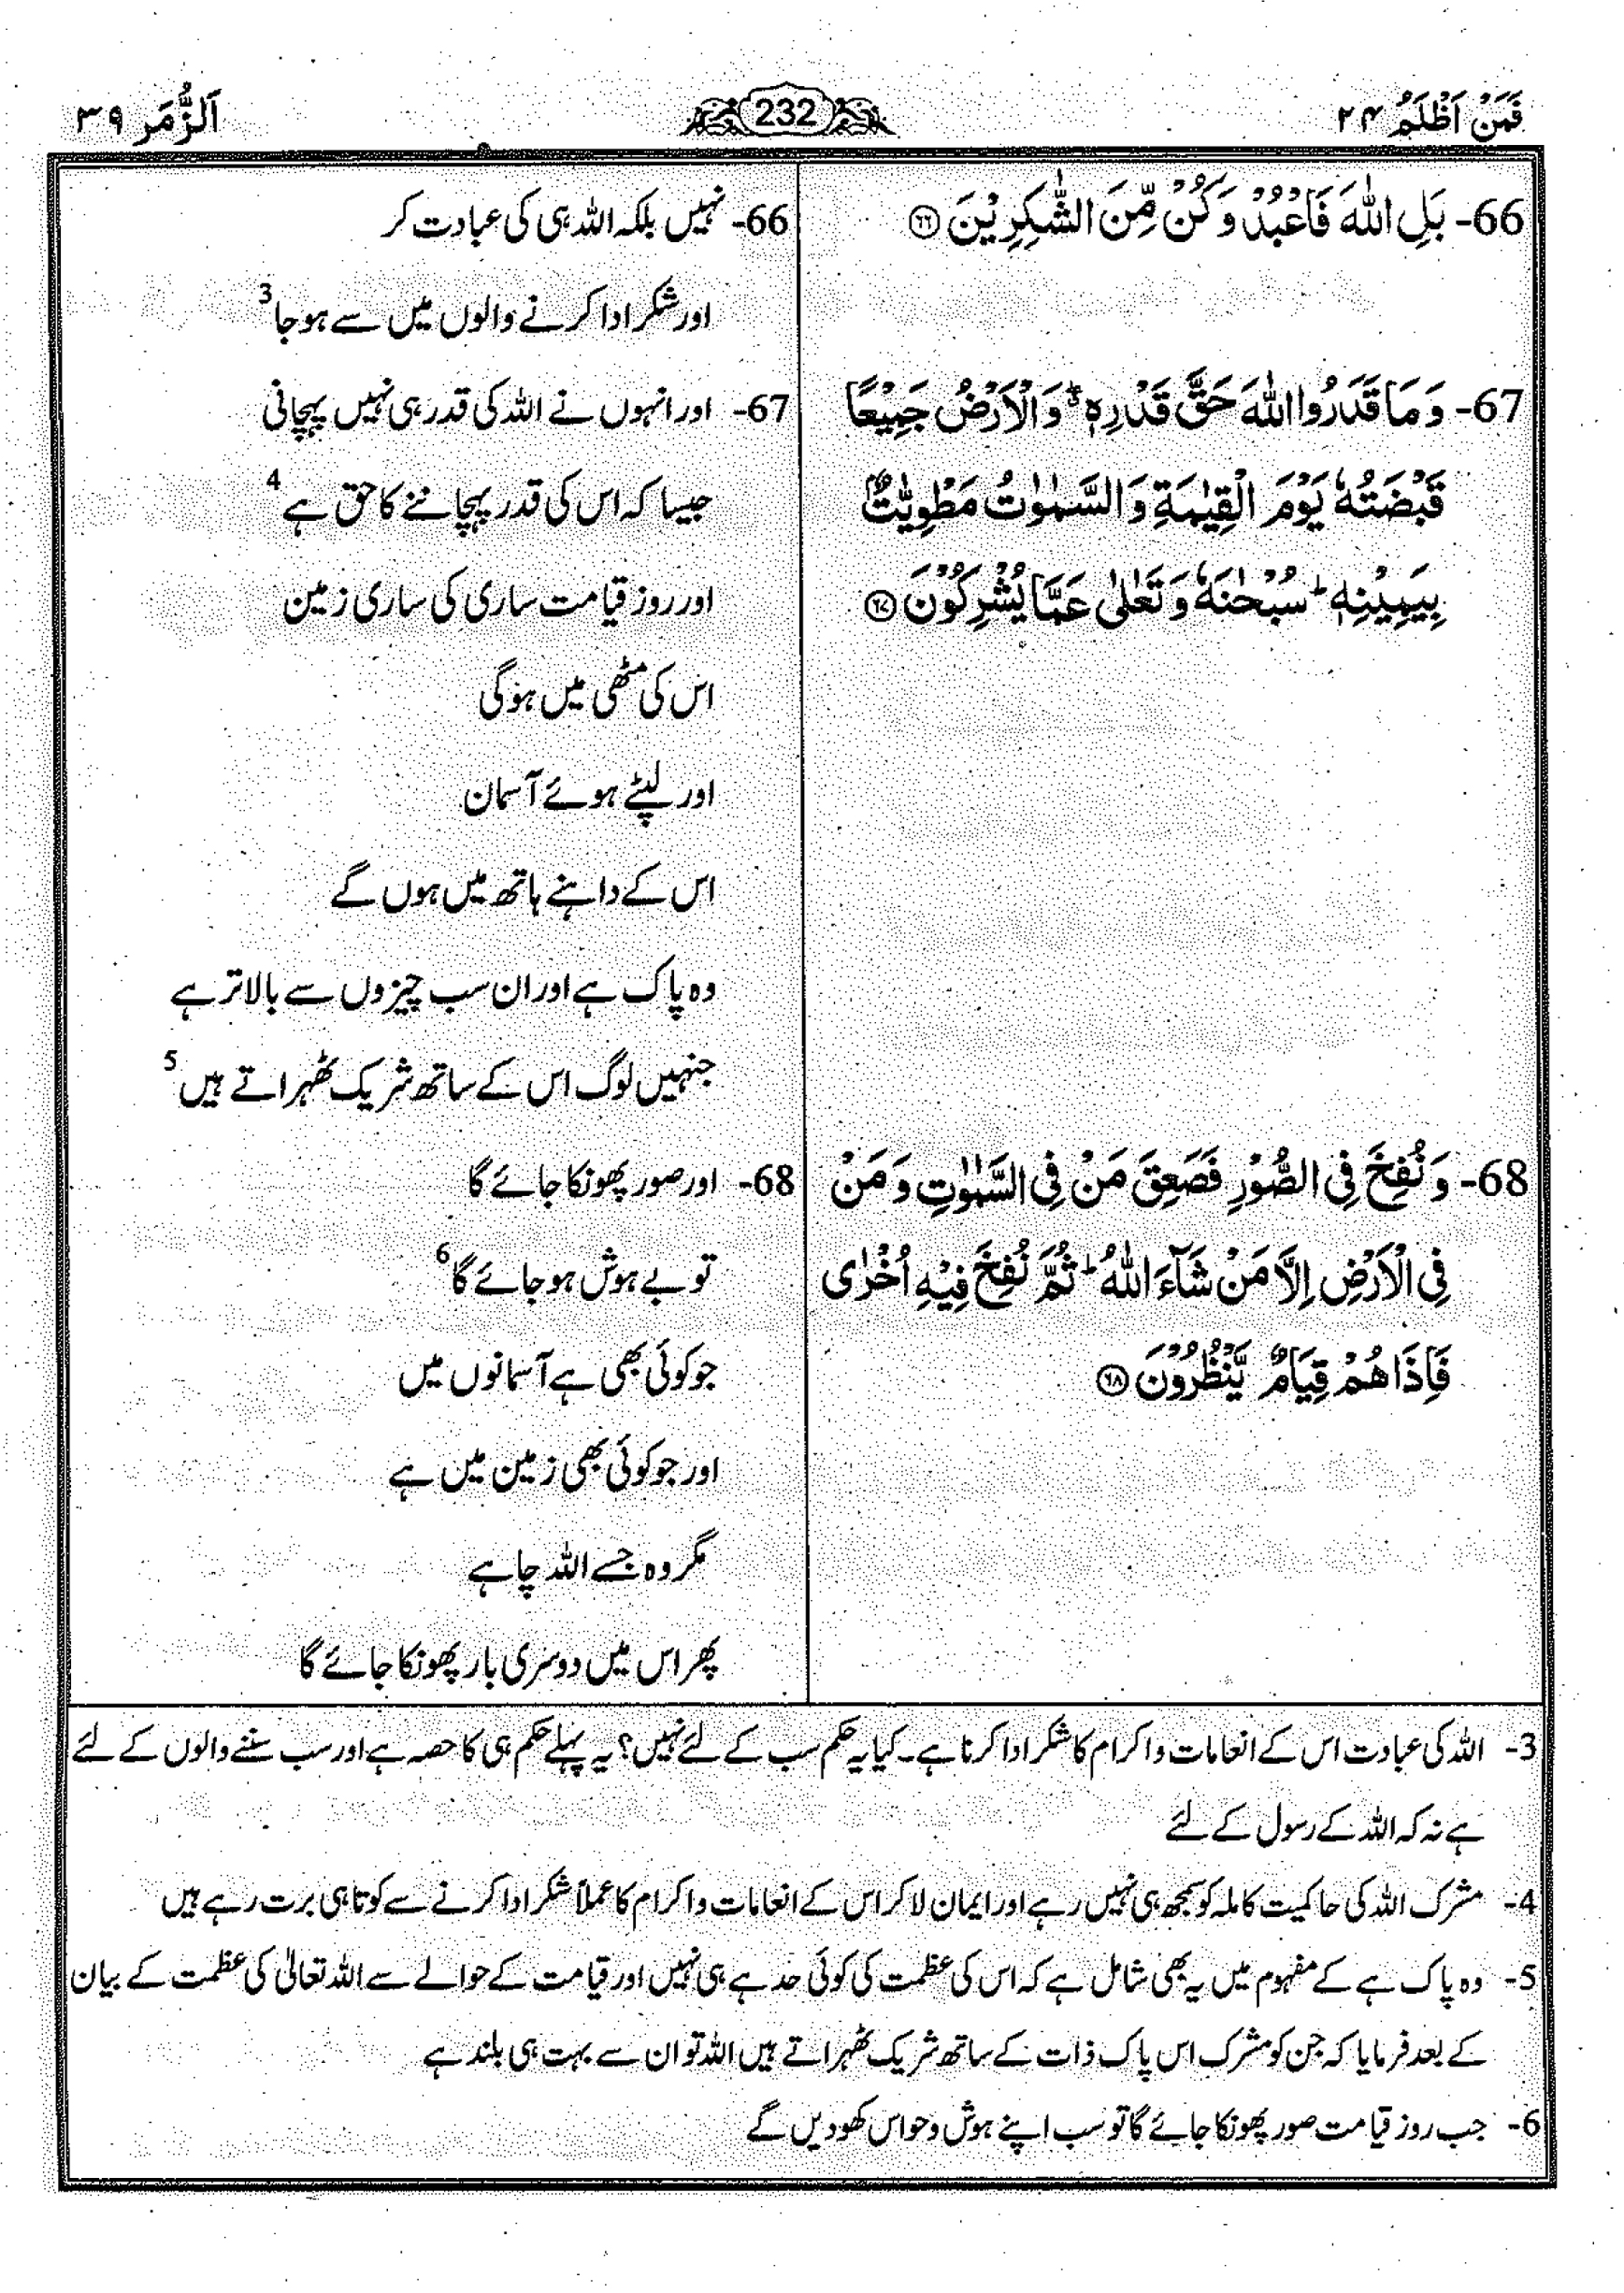 فَمَنْ اَظْلَمُ ۲۴
232
اَلزُّمَر ۳۹
66- بَلِ اللّٰهَ فَاعْبُدْ وَكُنْ مِّنَ الشّٰكِرِيْنَ ﴿۶۶﴾
67- وَمَا قَدَرُوا اللّٰهَ حَقَّ قَدْرِهٖ ۖ وَالْاَرْضُ جَمِيْعًا
قَبْضَتُهٗ يَوْمَ الْقِيٰمَةِ وَالسَّمٰوٰتُ مَطْوِيّٰتٌۢ
بِيَمِيْنِهٖ ؕ سُبْحٰنَهٗ وَتَعٰلٰى عَمَّا يُشْرِكُوْنَ ﴿۶۷﴾
68- وَنُفِخَ فِى الصُّوْرِ فَصَعِقَ مَنْ فِى السَّمٰوٰتِ وَمَنْ
فِى الْاَرْضِ اِلَّا مَنْ شَآءَ اللّٰهُ ؕ ثُمَّ نُفِخَ فِيْهِ اُخْرٰى
فَاِذَا هُمْ قِيَامٌ يَّنْظُرُوْنَ ﴿۶۸﴾
66- نہیں بلکہ اللہ ہی کی عبادت کر
اور شکر ادا کرنے والوں میں سے ہو جا 3
67- اور انہوں نے اللہ کی قدر ہی نہیں پہچانی
جیسا کہ اس کی قدر پہچاننے کا حق ہے 4
اور روز قیامت ساری کی ساری زمین
اس کی مٹھی میں ہوگی
اور لپٹے ہوئے آسمان
اس کے داہنے ہاتھ میں ہوں گے
وہ پاک ہے اور ان سب چیزوں سے بالاتر ہے
جنہیں لوگ اس کے ساتھ شریک ٹھہراتے ہیں 5
68- اور صور پھونکا جائے گا
تو بے ہوش ہو جائے گا 6
جو کوئی بھی ہے آسمانوں میں
اور جو کوئی بھی زمین میں ہے
مگر وہ جسے اللہ چاہے
پھر اس میں دوسری بار پھونکا جائے گا
3- اللہ کی عبادت اس کے انعامات و اکرام کا شکر ادا کرنا ہے۔ کیا یہ حکم سب کے لئے نہیں؟ یہ پہلے حکم ہی کا حصہ ہے اور سب سننے والوں کے لئے
ہے نہ کہ اللہ کے رسول کے لئے
4- مشرک اللہ کی حاکمیت کاملہ کو سمجھ ہی نہیں رہے اور ایمان لا کر اس کے انعامات و اکرام کا عملاً شکر ادا کرنے سے کوتاہی برت رہے ہیں
5- وہ پاک ہے کے مفہوم میں یہ بھی شامل ہے کہ اس کی عظمت کی کوئی حد ہے ہی نہیں اور قیامت کے حوالے سے اللہ تعالیٰ کی عظمت کے بیان
کے بعد فرمایا کہ جن کو مشرک اس پاک ذات کے ساتھ شریک ٹھہراتے ہیں اللہ تو ان سے بہت ہی بلند ہے
6- جب روز قیامت صور پھونکا جائے گا تو سب اپنے ہوش و حواس کھو دیں گے